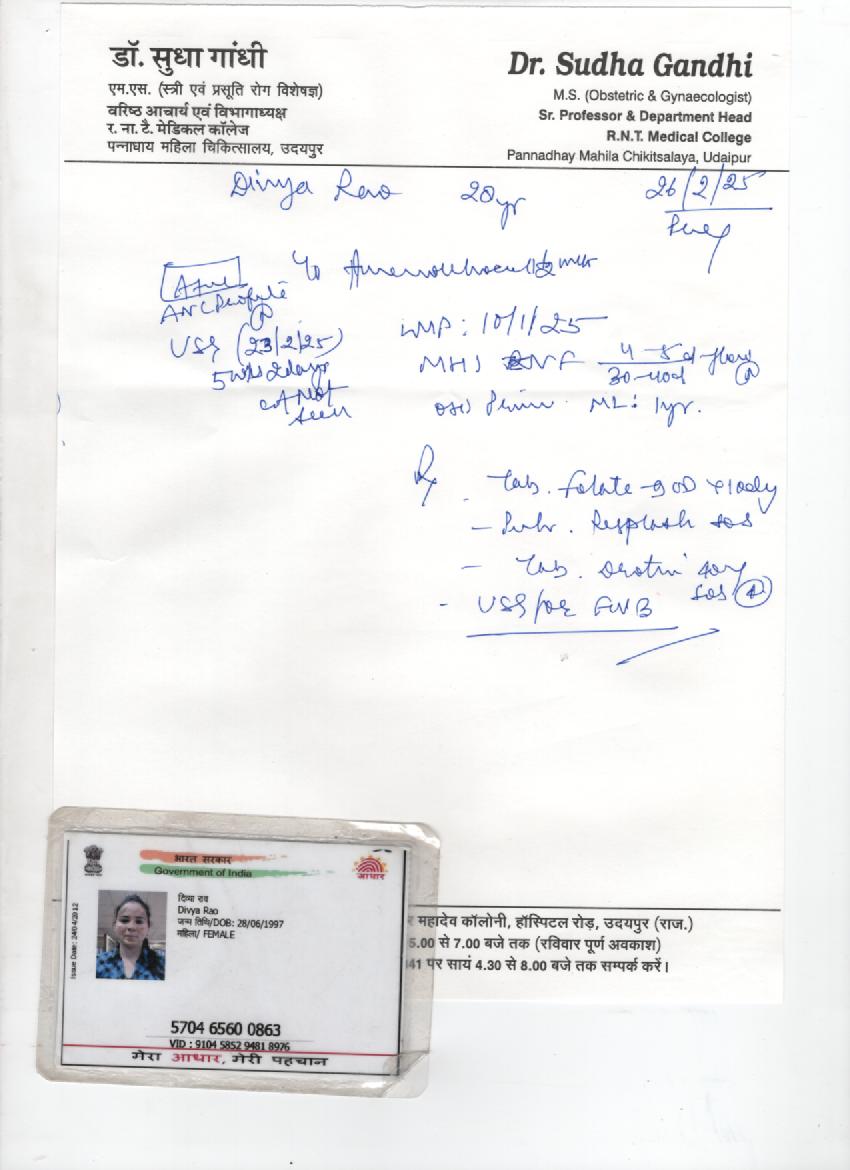 डॉ. सुधा गांधी
एम.एस. (स्त्री एवं प्रसूति रोग विशेषज्ञ)
वरिष्ठ आचार्य एवं विभागाध्यक्ष
र. ना. टै. मेडिकल कॉलेज
पन्नाधाय महिला चिकित्सालय, उदयपुर
Dr. Sudha Gandhi
M.S. (Obstetric & Gynaecologist)
Sr. Professor & Department Head
R.N.T. Medical College
Pannadhay Mahila Chikitsalaya, Udaipur
Divya Rao 20yr 26/2/25
ANC Profile
USG (23/2/25)
5 wks 2days
Not
seen
LMP: 10/1/25
4-5d flow
30-40d
ML: 1yr.
Tab. Folate
sos
Tab.
sos
USG for FWB
भारत सरकार
Government of India
आधार
Issue Date: 24/04/2012
दिव्या राव
Divya Rao
जन्म तिथि/DOB: 28/06/1997
महिला/ FEMALE
5704 6560 0863
VID : 9104 5852 9481 8976
मेरा आधार, मेरी पहचान
महादेव कॉलोनी, हॉस्पिटल रोड़, उदयपुर (राज.)
5.00 से 7.00 बजे तक (रविवार पूर्ण अवकाश)
41 पर सायं 4.30 से 8.00 बजे तक सम्पर्क करें।